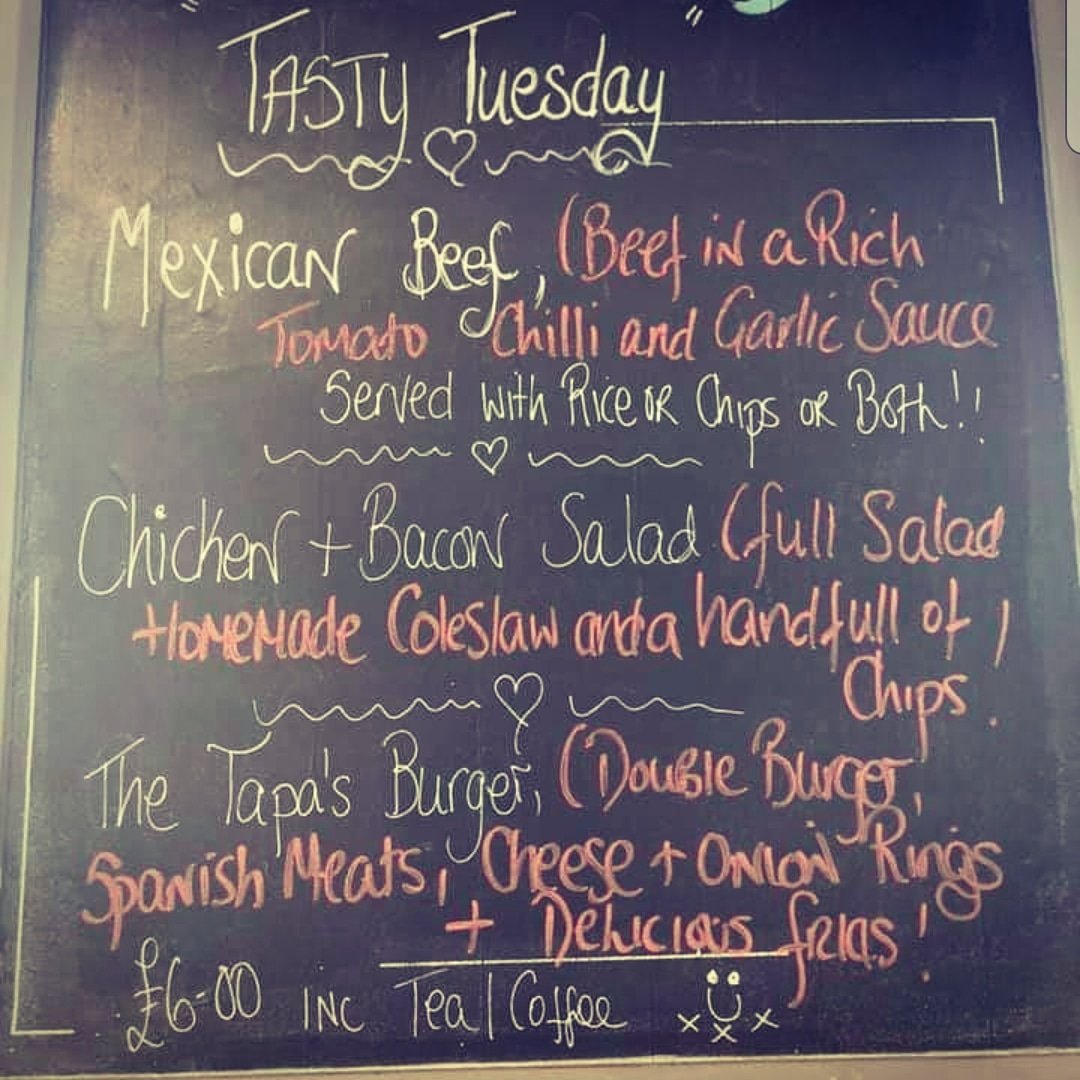 "TASTY Tuesday"
Mexican Beef, (Beef in a Rich
Tomato Chilli and Garlic Sauce
Served with Rice or Chips or Both!!
Chicken + Bacon Salad (full Salad
Homemade Coleslaw and a handfull of )
Chips.
The Tapa's Burger, (Double Burger,
Spanish Meats, Cheese + Onion Rings
+ Delicious frias!
£6-00 inc Tea/Coffee x x x